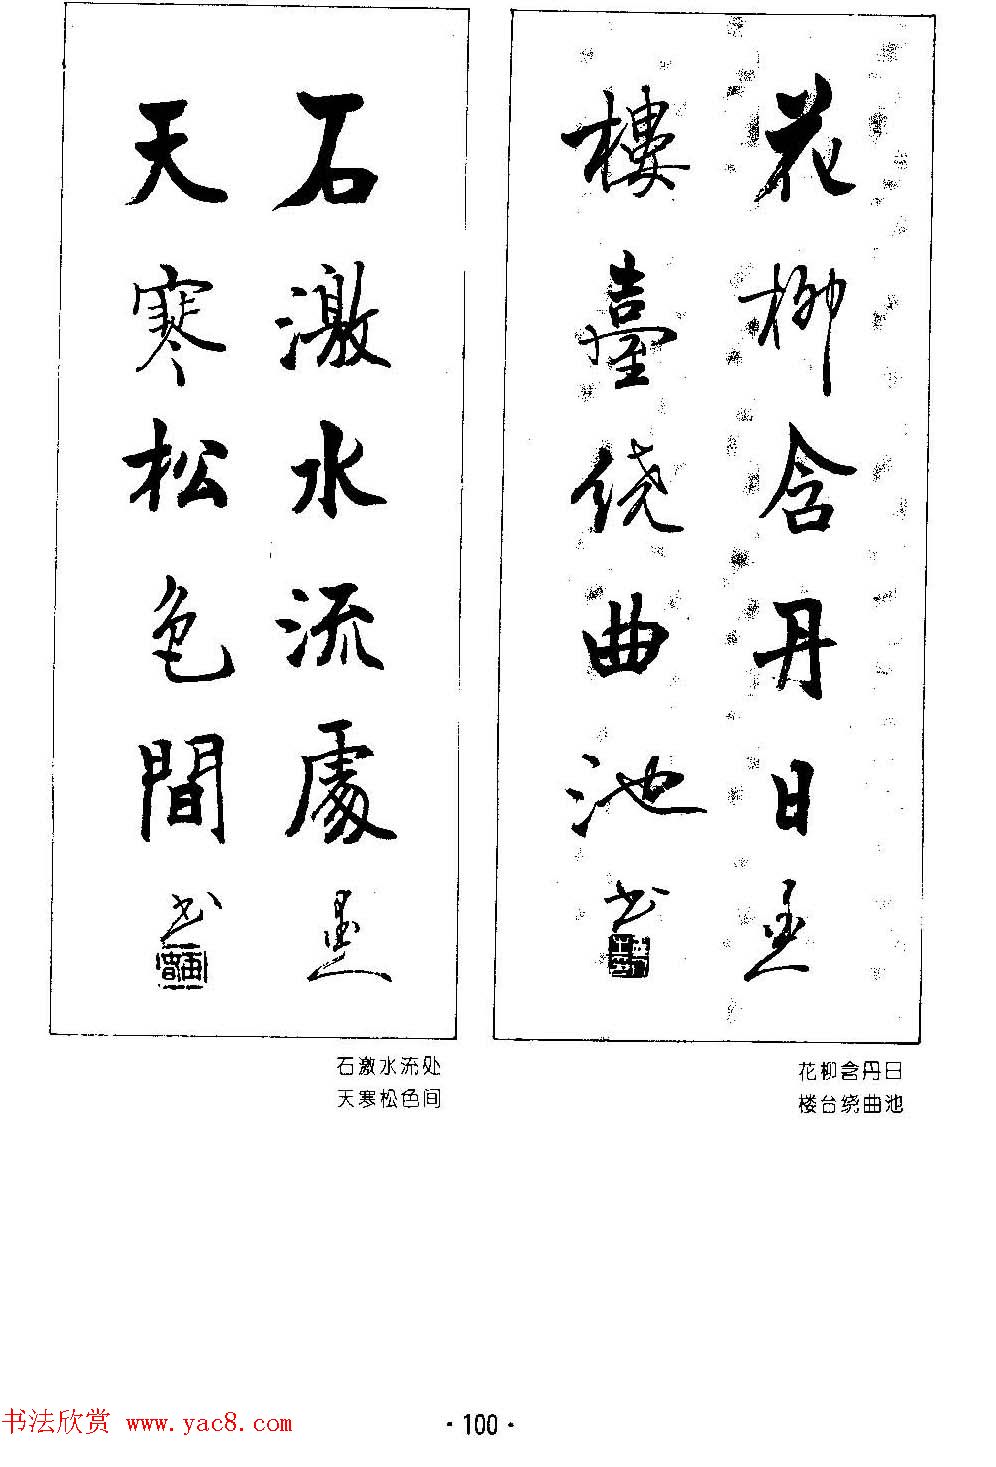 花柳含丹日
樓臺绕曲池书
石激水流處
天寒松色間书
花柳含丹日
楼台绕曲池
石激水流处
天寒松色间
·100·
书法欣赏 www.yac8.com